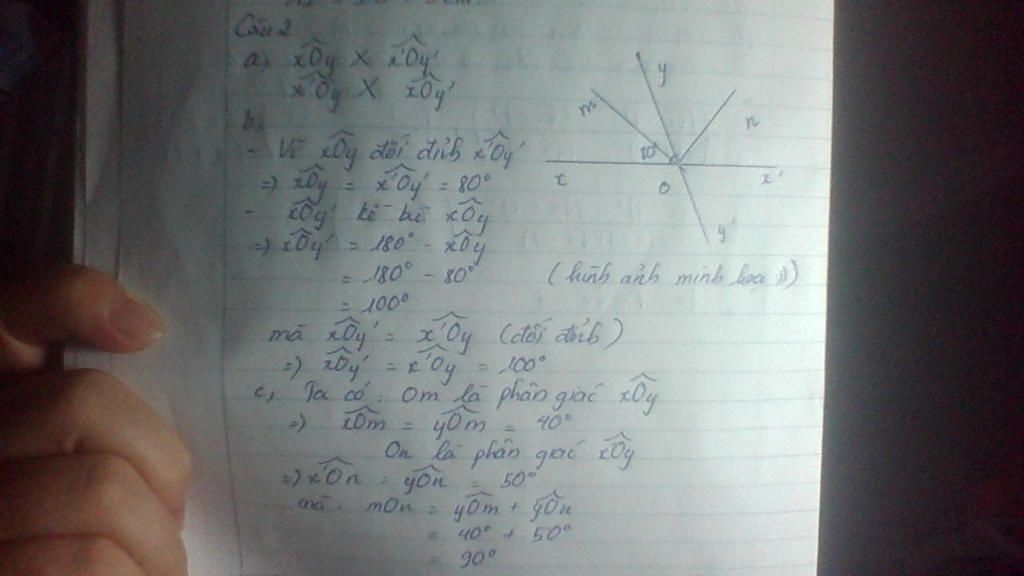 Câu 2
a, xOy X x'Oy'
x'Oy X xOy'
b,
- Vì xOy đối đỉnh x'Oy'
=> xOy = x'Oy' = 80°
- xOy' kề bù xOy
=> xOy' = 180° - xOy
= 180° - 80°
= 100°
mà xOy' = x'Oy (đối đỉnh)
=> xOy' = x'Oy = 100°
c, Ta có: Om là phân giác xOy
=> xOm = yOm = 40°
On là phân giác xOy
=> x'On = yOn = 50°
mà: mOn = yOm + yOn
= 40° + 50°
= 90°
y
m
n
80°
x
O
x'
y'
(hình ảnh minh họa :)))